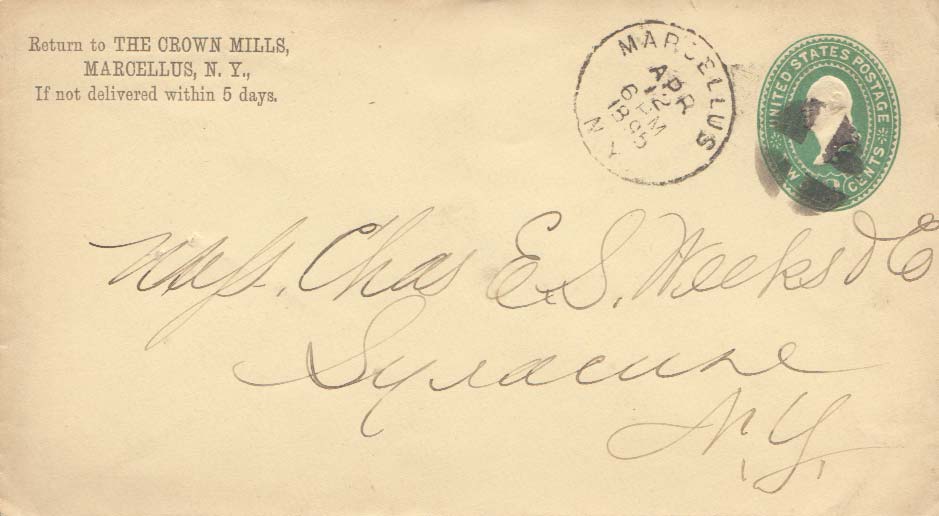 Return to THE CROWN MILLS,
MARCELLUS, N. Y.,
If not delivered within 5 days.
MARCELLUS
APR
12
6 PM
1895
N.Y.
UNITED STATES POSTAGE
CENTS
Mess. Chas E. S. Weeks & C
Syracuse
N.Y.